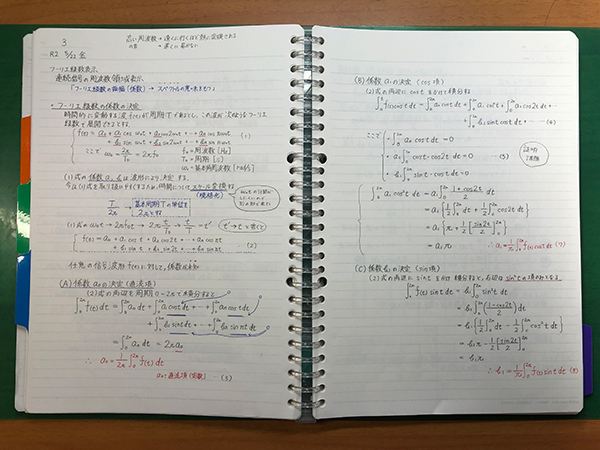 3
高い周波数 → 遠くに行くほど熱に変換される
の音 → 遠くに届かない
R2 5/22 金
フーリエ級数表示
連続信号の周波数領域表示
「フーリエ級数の振幅(係数) → スペクトルの高・低をもつ」
・フーリエ級数の係数の決定
時間的に変動する波f(t)が周期Tであるとし、この波が次のようなフーリエ
級数で展開できるとする。
f(t) = a₀ + a₁ cos ω₀t + a₂ cos 2ω₀t + ‥ + aₙ cos nω₀t
+ b₁ sin ω₀t + b₂ sin 2ω₀t + ‥ + bₙ sin nω₀t (1)
ここで ω₀ = 2π/T₀ = 2πf₀
f₀ = 周波数 [Hz]
T₀ = 周期 [s]
ω₀ = 基本角周波数 [rad/s]
(1)式の係数 a, b は波形により決定する
スケール変換する
T/2π → 基本周期Tの単位を2πとする
(1)式の ω₀t → 2πf₀t → 2π t/T₀ → = t'
(t' → t と書く)
f(t) = a₀ + a₁ cos t + a₂ cos 2t + ‥ + aₙ cos nt
+ b₁ sin t + b₂ sin 2t + ‥ + bₙ sin nt (2)
任意の信号波形 f(t) に対して、係数
(A) 係数 a₀ の決定 (直流項)
(2)式の両辺を周期 0~2π で積分すると
∫₀²π f(t) dt = ∫₀²π a₀ dt + ∫₀²π a₁ cos t dt + ‥ + ∫₀²π aₙ cos nt dt
+ ∫₀²π b₁ sin t dt + ‥ + ∫₀²π bₙ sin nt dt
= ∫₀²π a₀ dt = 2π a₀
∴ a₀ = 1/2π ∫₀²π f(t) dt
a₀:直流項(定数) — (3)
(B) 係数 a₁ の決定 (cos項)
(2)式の両辺に cos t をかけて積分する
∫₀²π f(t) cos t dt = ∫₀²π a₀ cos t dt + ∫₀²π a₁ cos² t + ∫₀²π a₂ cos 2t dt + ‥
+ ∫₀²π b₁ sin t cos t dt + ‥ — (4)
ここで
・ ∫₀²π a₀ cos t dt = 0
・ a₂ ∫₀²π cos t · cos 2t dt = 0 (5)
・ b₁ ∫₀²π sin t · cos t dt = 0
∫₀²π a₁ cos² t dt = a₁ ∫₀²π (1 + cos 2t)/2 dt
= a₁ { 1/2 ∫₀²π dt + 1/2 ∫₀²π cos 2t dt }
= a₁ { π + 1/2 [ sin 2t / 2 ]₀²π }
= a₁ π
∴ a₁ = 1/π ∫₀²π f(t) cos t dt (7)
(C) 係数 b₁ の決定 (sin項)
(2)式の両辺に sin t をかけ積分すると、右辺は sin² t の項のみとなる
∫₀²π f(t) sin t dt = b₁ ∫₀²π sin² t dt
= b₁ ∫₀²π (1 − cos 2t)/2 dt
= b₁ { 1/2 ∫₀²π dt − 1/2 ∫₀²π cos² t dt }
= b₁ π − 1/2 [ sin 2t / 2 ]₀²π
= b₁ π
∴ b₁ = 1/π ∫₀²π f(t) sin t dt (8)